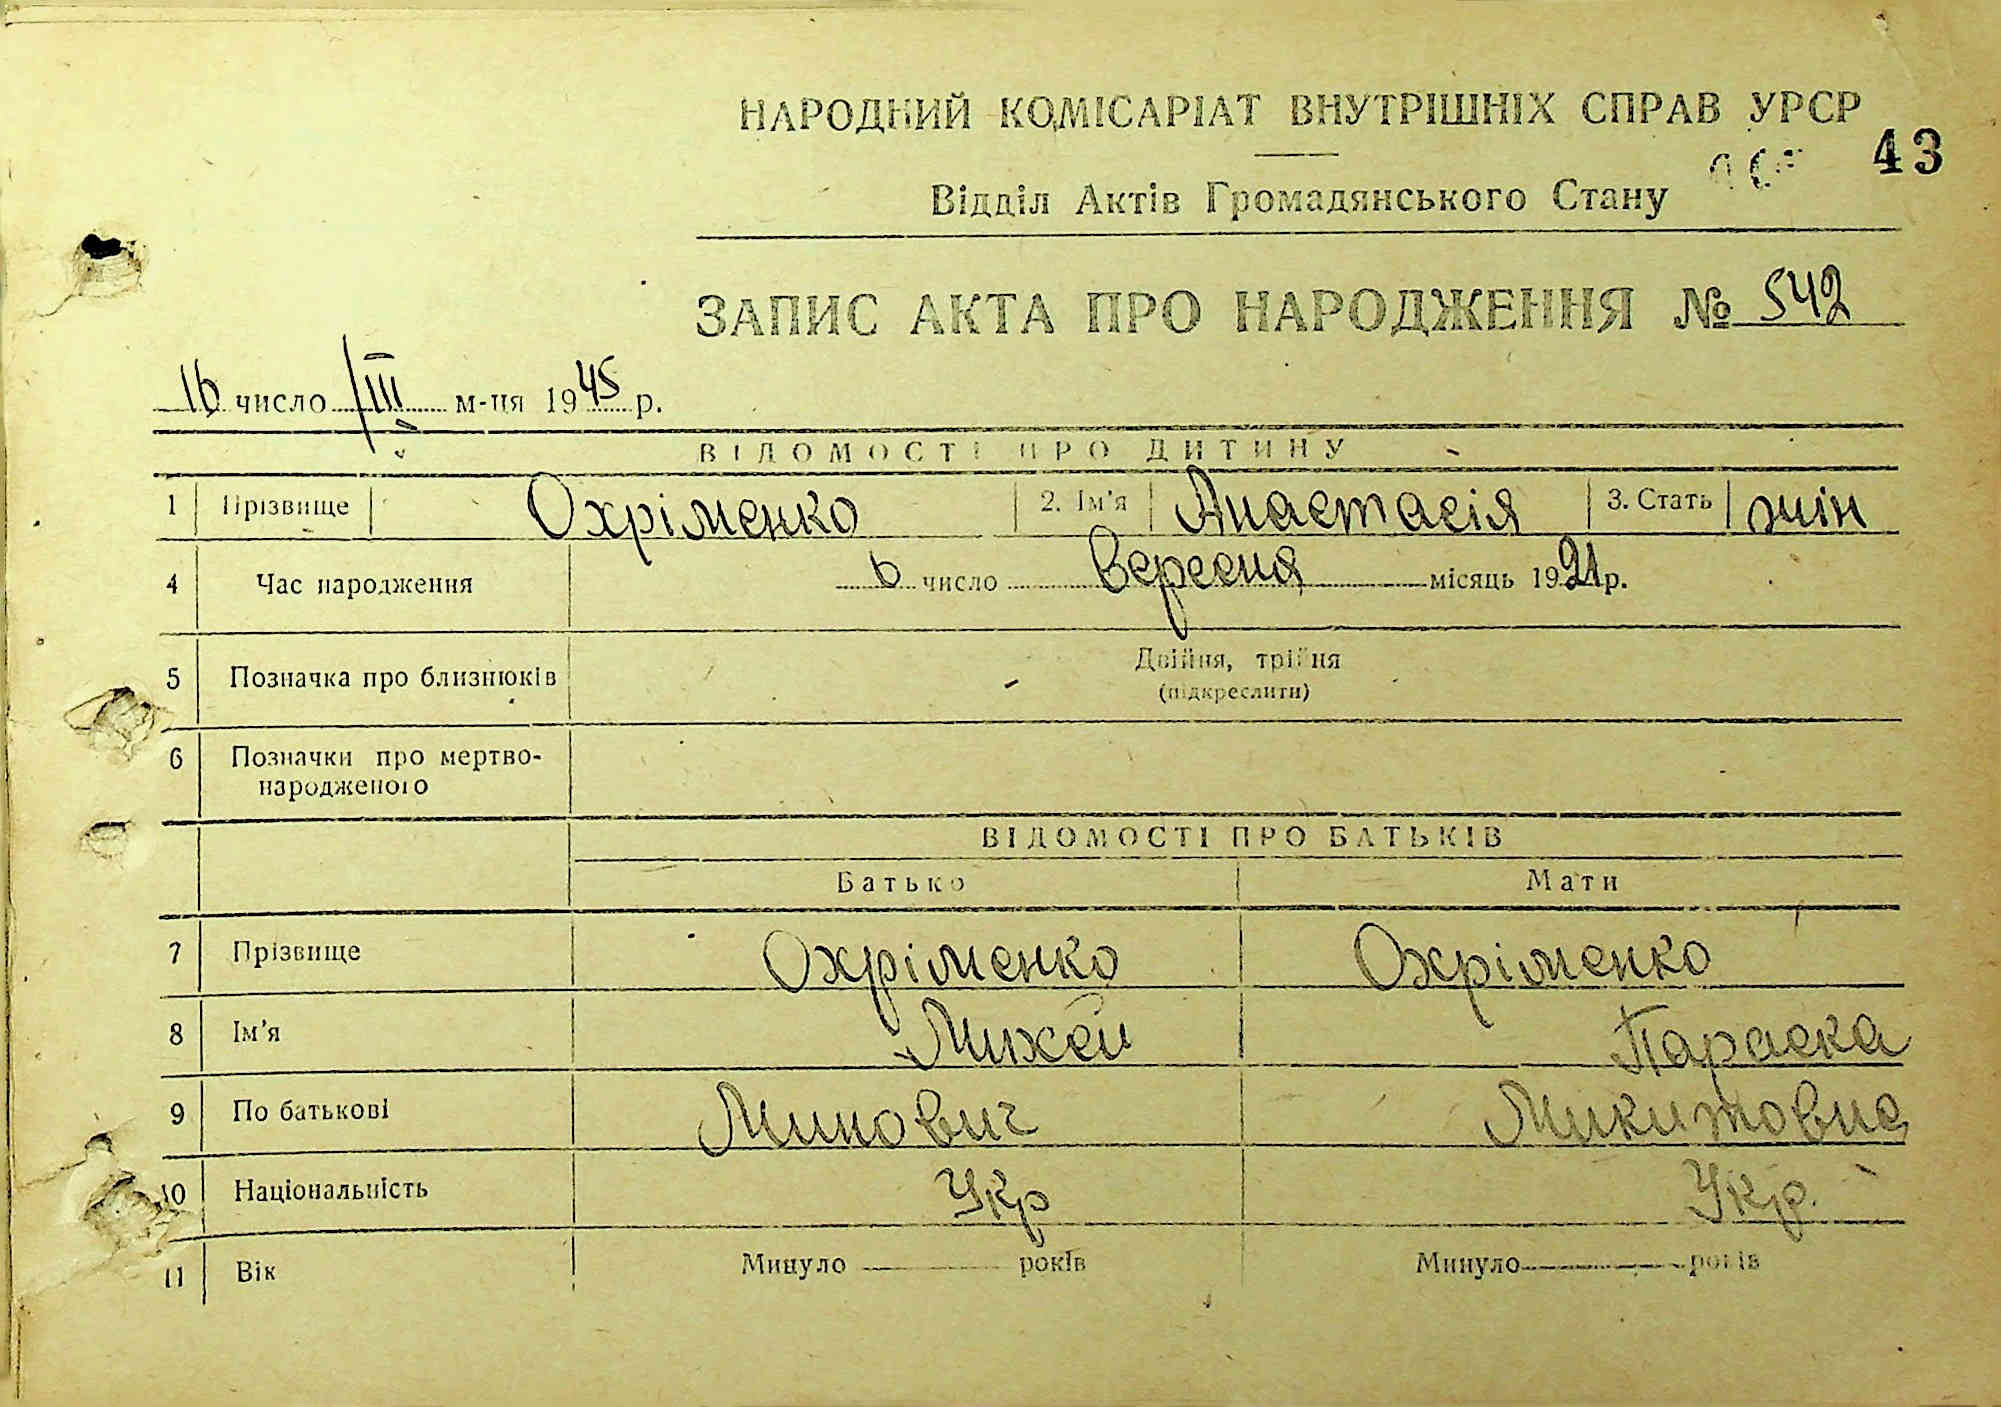 НАРОДНИЙ КОМІСАРІАТ ВНУТРІШНІХ СПРАВ УРСР
43
Відділ Актів Громадянського Стану
ЗАПИС АКТА ПРО НАРОДЖЕННЯ № 542
16 число III м-ця 1945 р.
ВІДОМОСТІ ПРО ДИТИНУ
1 Прізвище Охріменко 2. Ім'я Анастасія 3. Стать жін
4 Час народження 6 число Вересня місяць 1921 р.
5 Позначка про близнюків Двійня, трійня
(підкреслити)
6 Позначки про мертво-
народженого
ВІДОМОСТІ ПРО БАТЬКІВ
Батько Мати
7 Прізвище Охріменко Охріменко
8 Ім'я Михей Параска
9 По батькові Минович Микитовна
10 Національність Укр Укр.
11 Вік Минуло років Минуло років